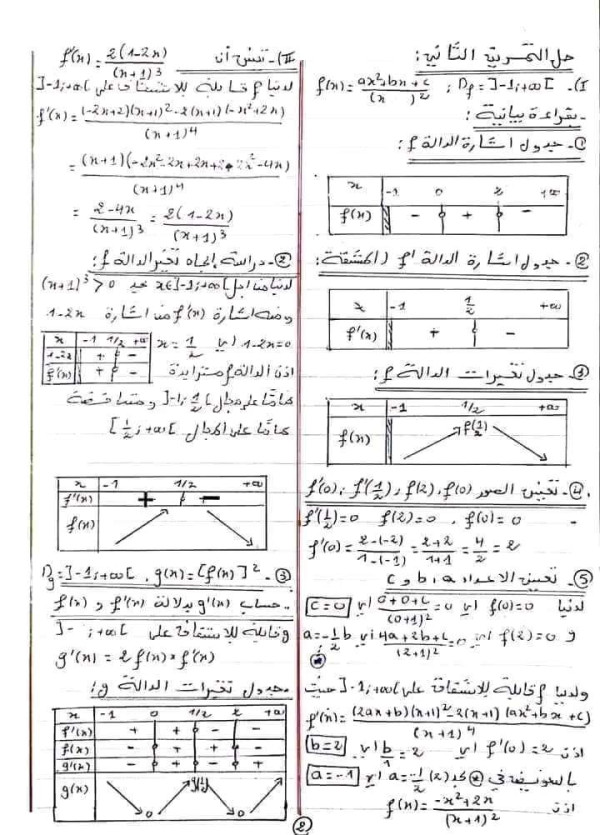 حل التمرين الثاني:
I)- f(x) = ax²+bx+c / (x )² ; Df = ]-1;+∞[
- بقراءة بيانية:
①- جدول اشارة الدالة f:
x | -1 0 2 +∞
f(x) | - 0 + 0 -
②- جدول اشارة الدالة f' (المشتقة):
x | -1 1/2 +∞
f'(x) | + 0 -
③- جدول تغيرات الدالة f:
x | -1 1/2 +∞
f(x) | f(1/2)
④- تعيين الصور f(0)، f(2)، f'(1/2)، f'(0):
f'(1/2)=0 f(2)=0 ، f(0)=0 -
f'(0) = 2-(-2) / 1-(-1) = 2+2 / 1+1 = 4/2 = 2
⑤- تعيين الاعداد a، b، c
لدينا f(0)=0 اي 0+0+c / (0+1)² = 0 اي c=0
و f(2)=0 اي 4a+2b+c / (2+1)² = 0 اي a=-1/2 b
ولدينا f قابلة للاشتقاق على ]-1;+∞[ حيث
f'(x) = (2ax+b)(x+1)²-2(x+1)(ax²+bx+c) / (x+1)⁴
اذن f'(0)=2 اي b/1 = 2 اي b=2
بالتعويض في نجد a=-1/2 (2) اي a=-1
اذن f(x) = -x²+2x / (x+1)²
II)- تبيين أن f'(x) = 2(1-2x) / (x+1)³
لدينا f قابلة للاشتقاق على ]-1;+∞[
f'(x) = (-2x+2)(x+1)²-2(x+1)(-x²+2x) / (x+1)⁴
= (x+1)(-2x²-2x+2x+2+2x²-4x) / (x+1)⁴
= 2-4x / (x+1)³ = 2(1-2x) / (x+1)³
②- دراسة إتجاه تغير الدالة f:
لدينا من اجل x∈]-1;+∞[ نجد (x+1)³ > 0
ومنه اشارة f'(x) من اشارة 1-2x
1-2x=0 اي x = 1/2
x | -1 1/2 +∞
1-2x | + 0 -
f'(x) | + 0 -
اذن الدالة f متزايدة
تماما على مجال ]-1;1/2] ومتناقصة
تماما على المجال [1/2;+∞[
x | -1 1/2 +∞
f'(x) | + 0 -
f(x)
③- g(x) = [f(x)]² ، Dg = ]-1;+∞[
- حساب g'(x) بدلالة f'(x) و f(x)
g قابلة للاشتقاق على ]- ;+∞[
g'(x) = 2f(x)×f'(x)
- جدول تغيرات الدالة g:
x | -1 0 1/2 2 +∞
f'(x) | + + 0 - -
f(x) | - 0 + + 0 -
g'(x) | - 0 + 0 - 0 +
g(x) | 0 g(1/2) 0
2